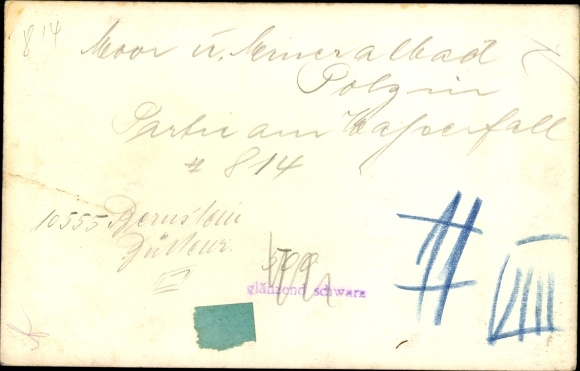 814
Moor u. Mineralbad
Polzin
Partie am Waßerfall
# 814
10555 Bernstein
500
glänzend schwarz